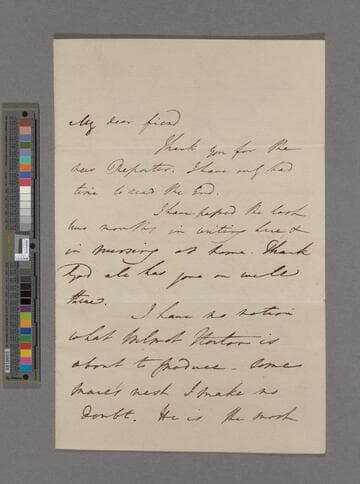 My dear friend
Thank you for the
new Reporter. I have only had
time to read the End.
I have passed the last
two months in writing here &
in nursing at home. Thank
God all has gone on well
there.
I have no notion
what Wilmot Horton is
about to produce - some
mare's nest I make no
doubt. He is the most